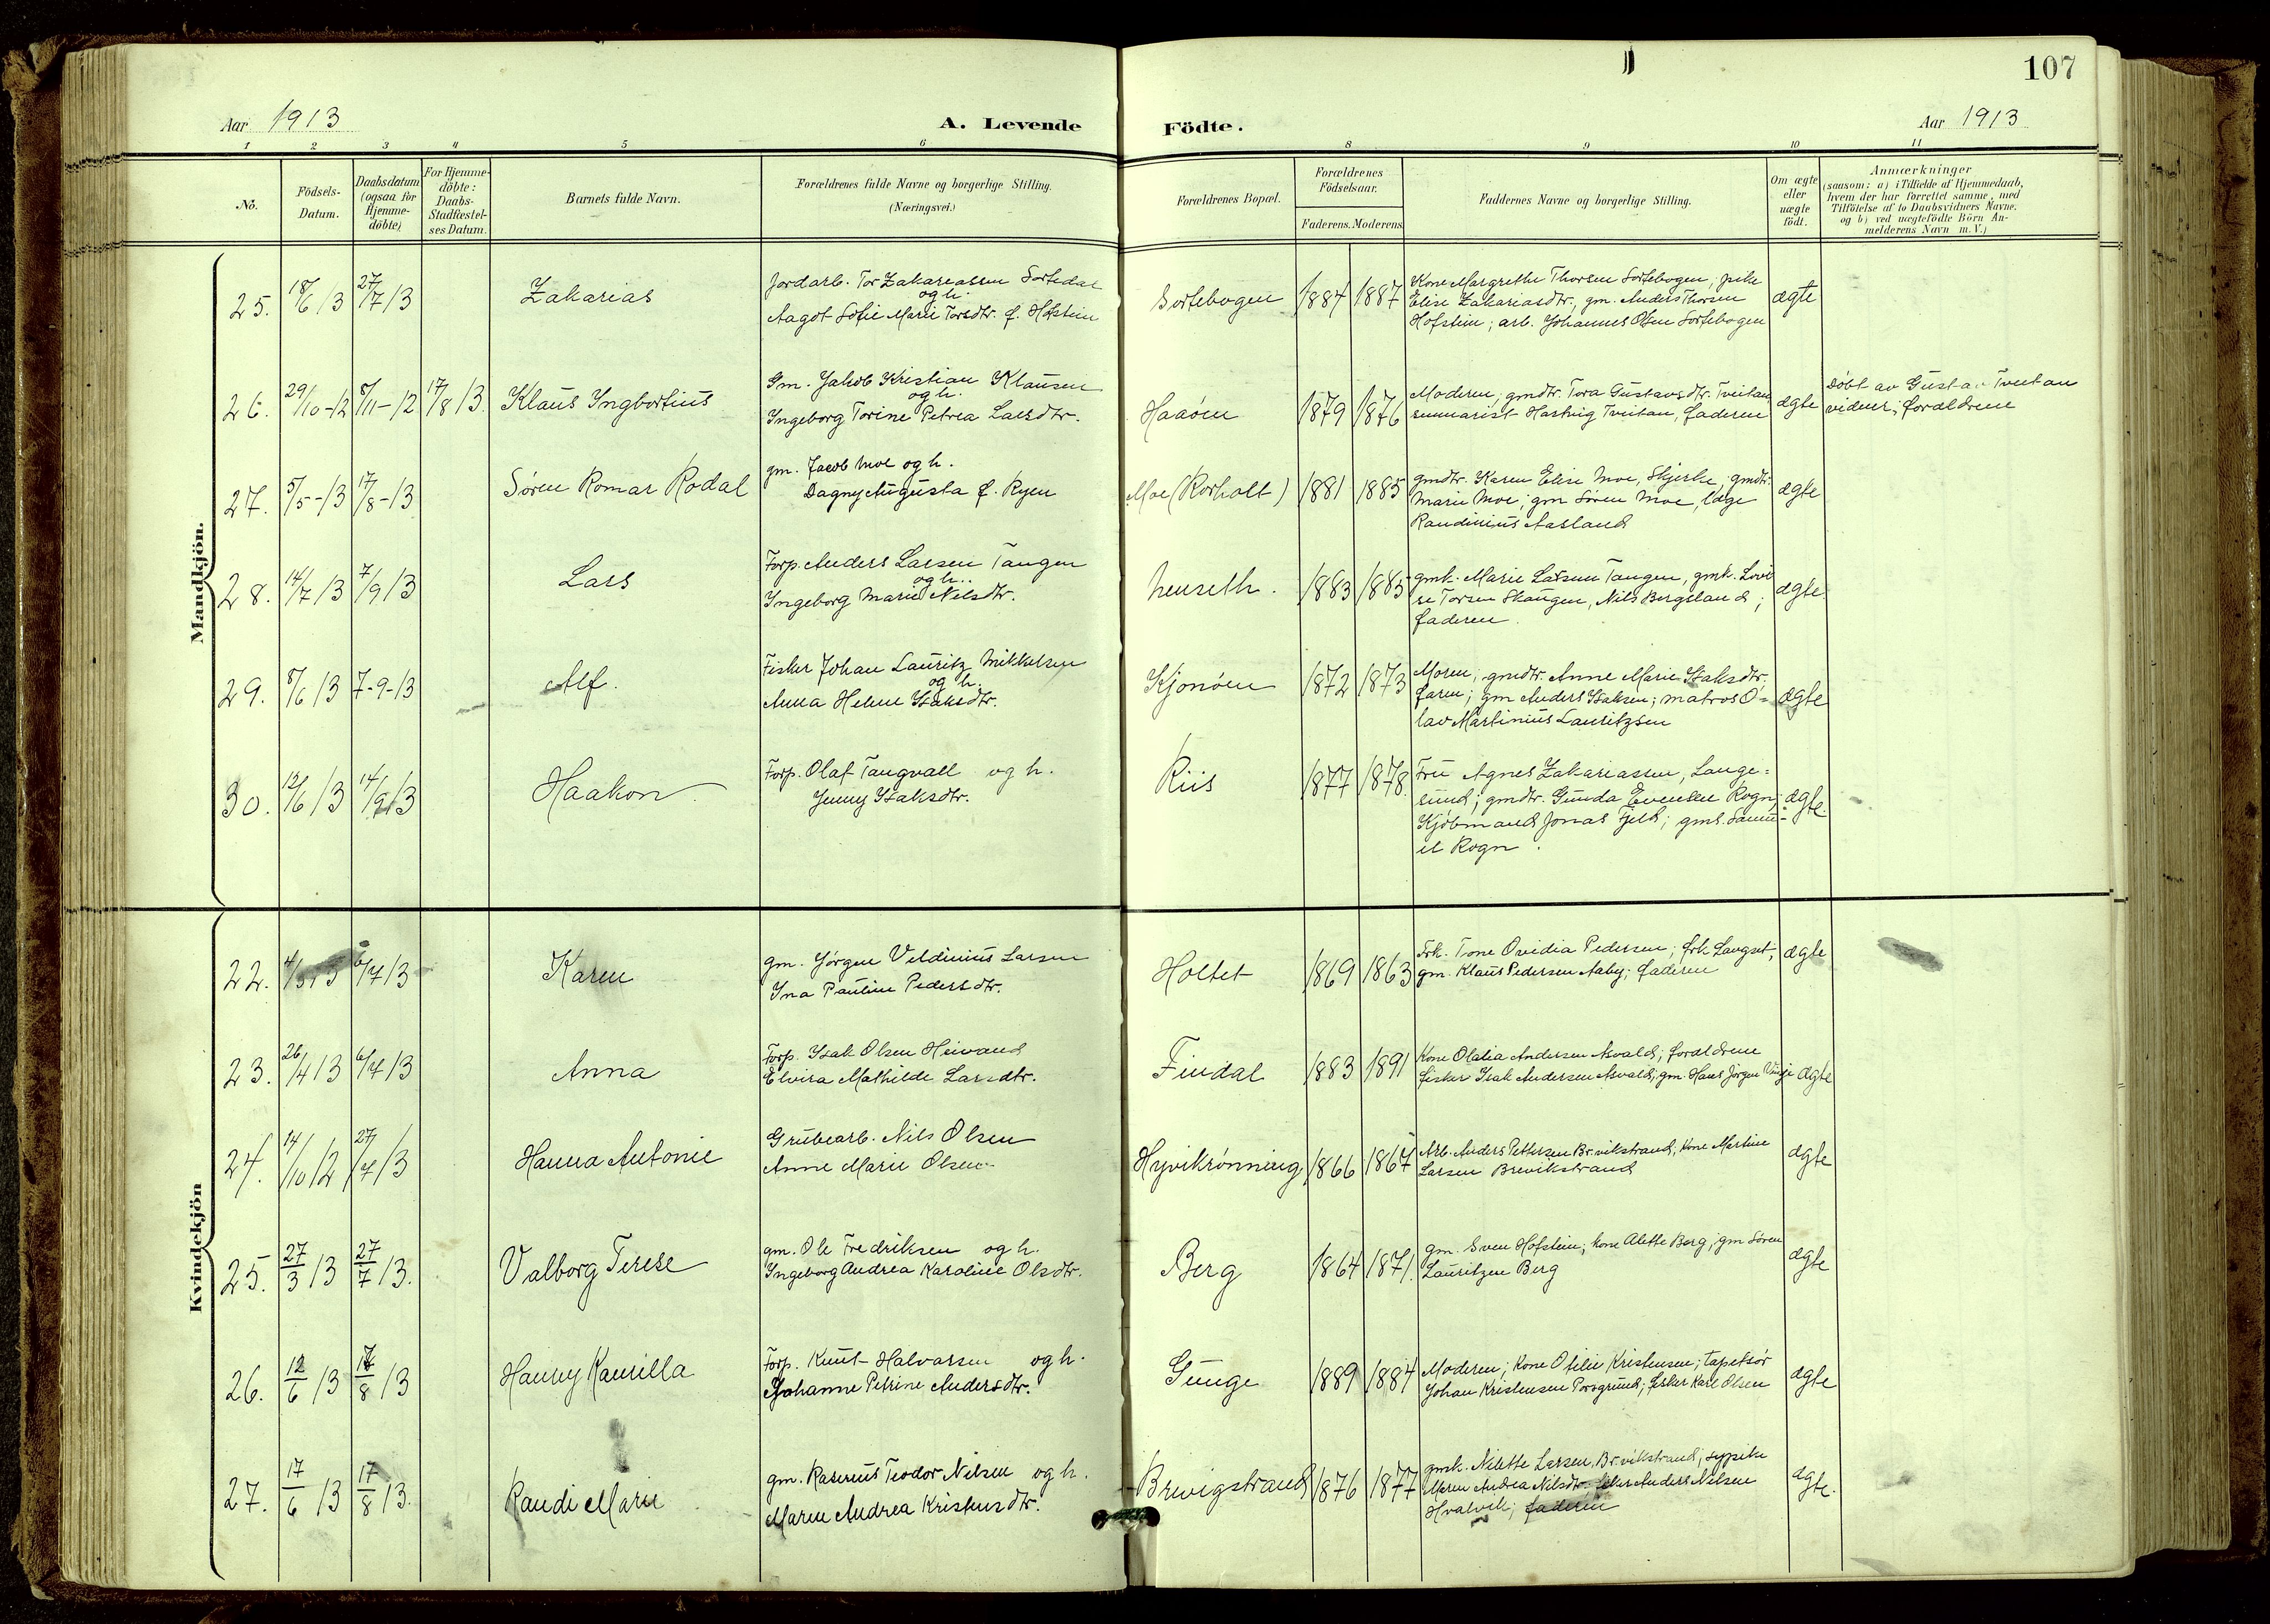 107
Aar 1913
A. Levende Födte.
Aar 1913
1 2 3 4 5 6 8 9 10 11
No.
Födsels-
Datum.
Daabsdatum
(ogsaa for
Hjemme-
döbte)
For Hjemme-
döbte:
Daabs-
Stadfæstel-
ses Datum.
Barnets fulde Navn.
Forældrenes fulde Navne og borgerlige Stilling.
(Næringsvei.)
Forældrenes Bopæl.
Forældrenes
Födselsaar.
Faderens. Moderens.
Faddernes Navne og borgerlige Stilling.
Om ægte
eller
uægte
födt.
Anmærkninger
(saasom: a) i Tilfælde af Hjemmedaab,
hvem der har forrettet samme, med
Tilföielse af to Daabsvidners Navne.
og b) ved uægtefödte Börn An-
melderens Navn m. V.)
Mandkjön.
25. 18/6 13 27/7 13 Zakarias
Jordarb. Tor Zakareassen Sortedal
og h.
Aagot Sofie Marie Torsdtr. f. Hofstein
Sortebogen 1884 1887
Kone Margrethe Thorsen Sortebogen, pike
Elise Zakariasdtr., gm. Anders Thorsen
Hofstein; arb. Johannes Olsen Sortebogen
ægte
26. 29/10-12 8/11-12 17/8 13. Klaus Ingbortius
Gm. Jakob Kristian Klausen
og h.
Ingeborg Torine Petrea Larsdtr.
Haaöen 1879 1876
Moderen, gmdtr. Tora Gustavsdtr. Tveitan,
seminarist Hartvig Tveitan, faderen
ægte
döbt av Gustav Tveitan
vidner; forældrene
27. 5/5-13 17/8-13 Sören Romar Rodal
gm. Jacob Moe og h.
Dagny Augusta f. Ryen
Moe (Korholt) 1881 1885
gmdtr. Karen Elise Moe, Skjerke, gmdtr.
Marie Moe; gm Sören Moe, læge
Randinius Aasland
ægte
28. 14/7 13 7/9 13 Lars
Forp. Anders Larsen Tangen
og h.
Ingeborg Marie Nilsdtr.
Henseth. 1883 1885
gmk. Marie Larsen Tangen, gmk. Lovi
se Torsen Skaugen, Nils Bergsland;
faderen.
ægte.
29. 8/6 13 7-9-13 Alf.
Fisker Johan Lauritz Mikkelsen
og h.
Anna Helene Isaksdtr.
Kjönöen 1872 1873
Moren; gmdtr. Anne Marie Isaksdtr.
faren; gm Anders Isaksen; matros O=
lav Martinius Lauritzsen
ægte
30. 12/6 13 14/9 13 Haakon.
Forp. Olaf Tangvall og h.
Jenny Isaksdtr.
Riis 1877 1878.
Fru Agnes Zakariassen, Lange=
sund; gmdtr. Gunda Evensen Rogn;
Kjöbmand Jonas Fjeld; gms. Samu=
el Rogn.
ægte.
Kvindekjön
22. 4/5 13 6/7 13 Karen
gm. Jörgen Veldinius Larsen
Ina Pauline Pedersdtr.
Holtet 1869 1863
Frk. Tone Ovidia Pedersen; frk Langset;
gm. Klaus Pedersen Aaby; faderen
ægte
23. 26/4 13 6/7 13 Anna
Forp. Isak Olsen Heivand
Elvira Mathilde Larsdtr.
Findal 1883 1891
Kone Olalia Andersen Asvald; forældrene
fisker Isak Andersen Asvald; gm. Hans Jörgen Vinje
ægte
24. 14/10 12 27/7 13 Hanna Antonie
Grubearb. Nils Olsen
Anne Marie Olsen
Hyvikrönning 1866 1867
Arb. Anders Pettersen Brevikstrand; kone Martine
Larsen Brevikstrand
ægte
25. 27/3 13 27/7 13. Valborg Terese
gm. Ole Fredriksen og h.
Ingeborg Andrea Karoline Olsdtr.
Berg 1864 1871.
gm. Sven Hofstein; kone Alette Berg; gm Sören
Lauritzen Berg
ægte
26. 12/6 13 17/8 13 Hanny Kamilla
Forp. Knut Halvorsen og h.
Johanne Petrine Andersdtr.
Gunge 1889 1884
Moderen; Kone Otilie Kristensen; tapetsör
Johan Kristensen Porsgrund; fisker Karl Olsen
ægte
27. 17/6 13 17/8 13. Randi Marie
gm. Rasmus Teodor Nilsen og h.
Maren Andrea Kristensdtr.
Brevigstrand 1876 1877
gmk. Nilette Larsen, Brevikstrand; sypike
Maren Andrea Nilsdtr; fisker Anders Nilsen
Hvalvik; faderen
ægte.